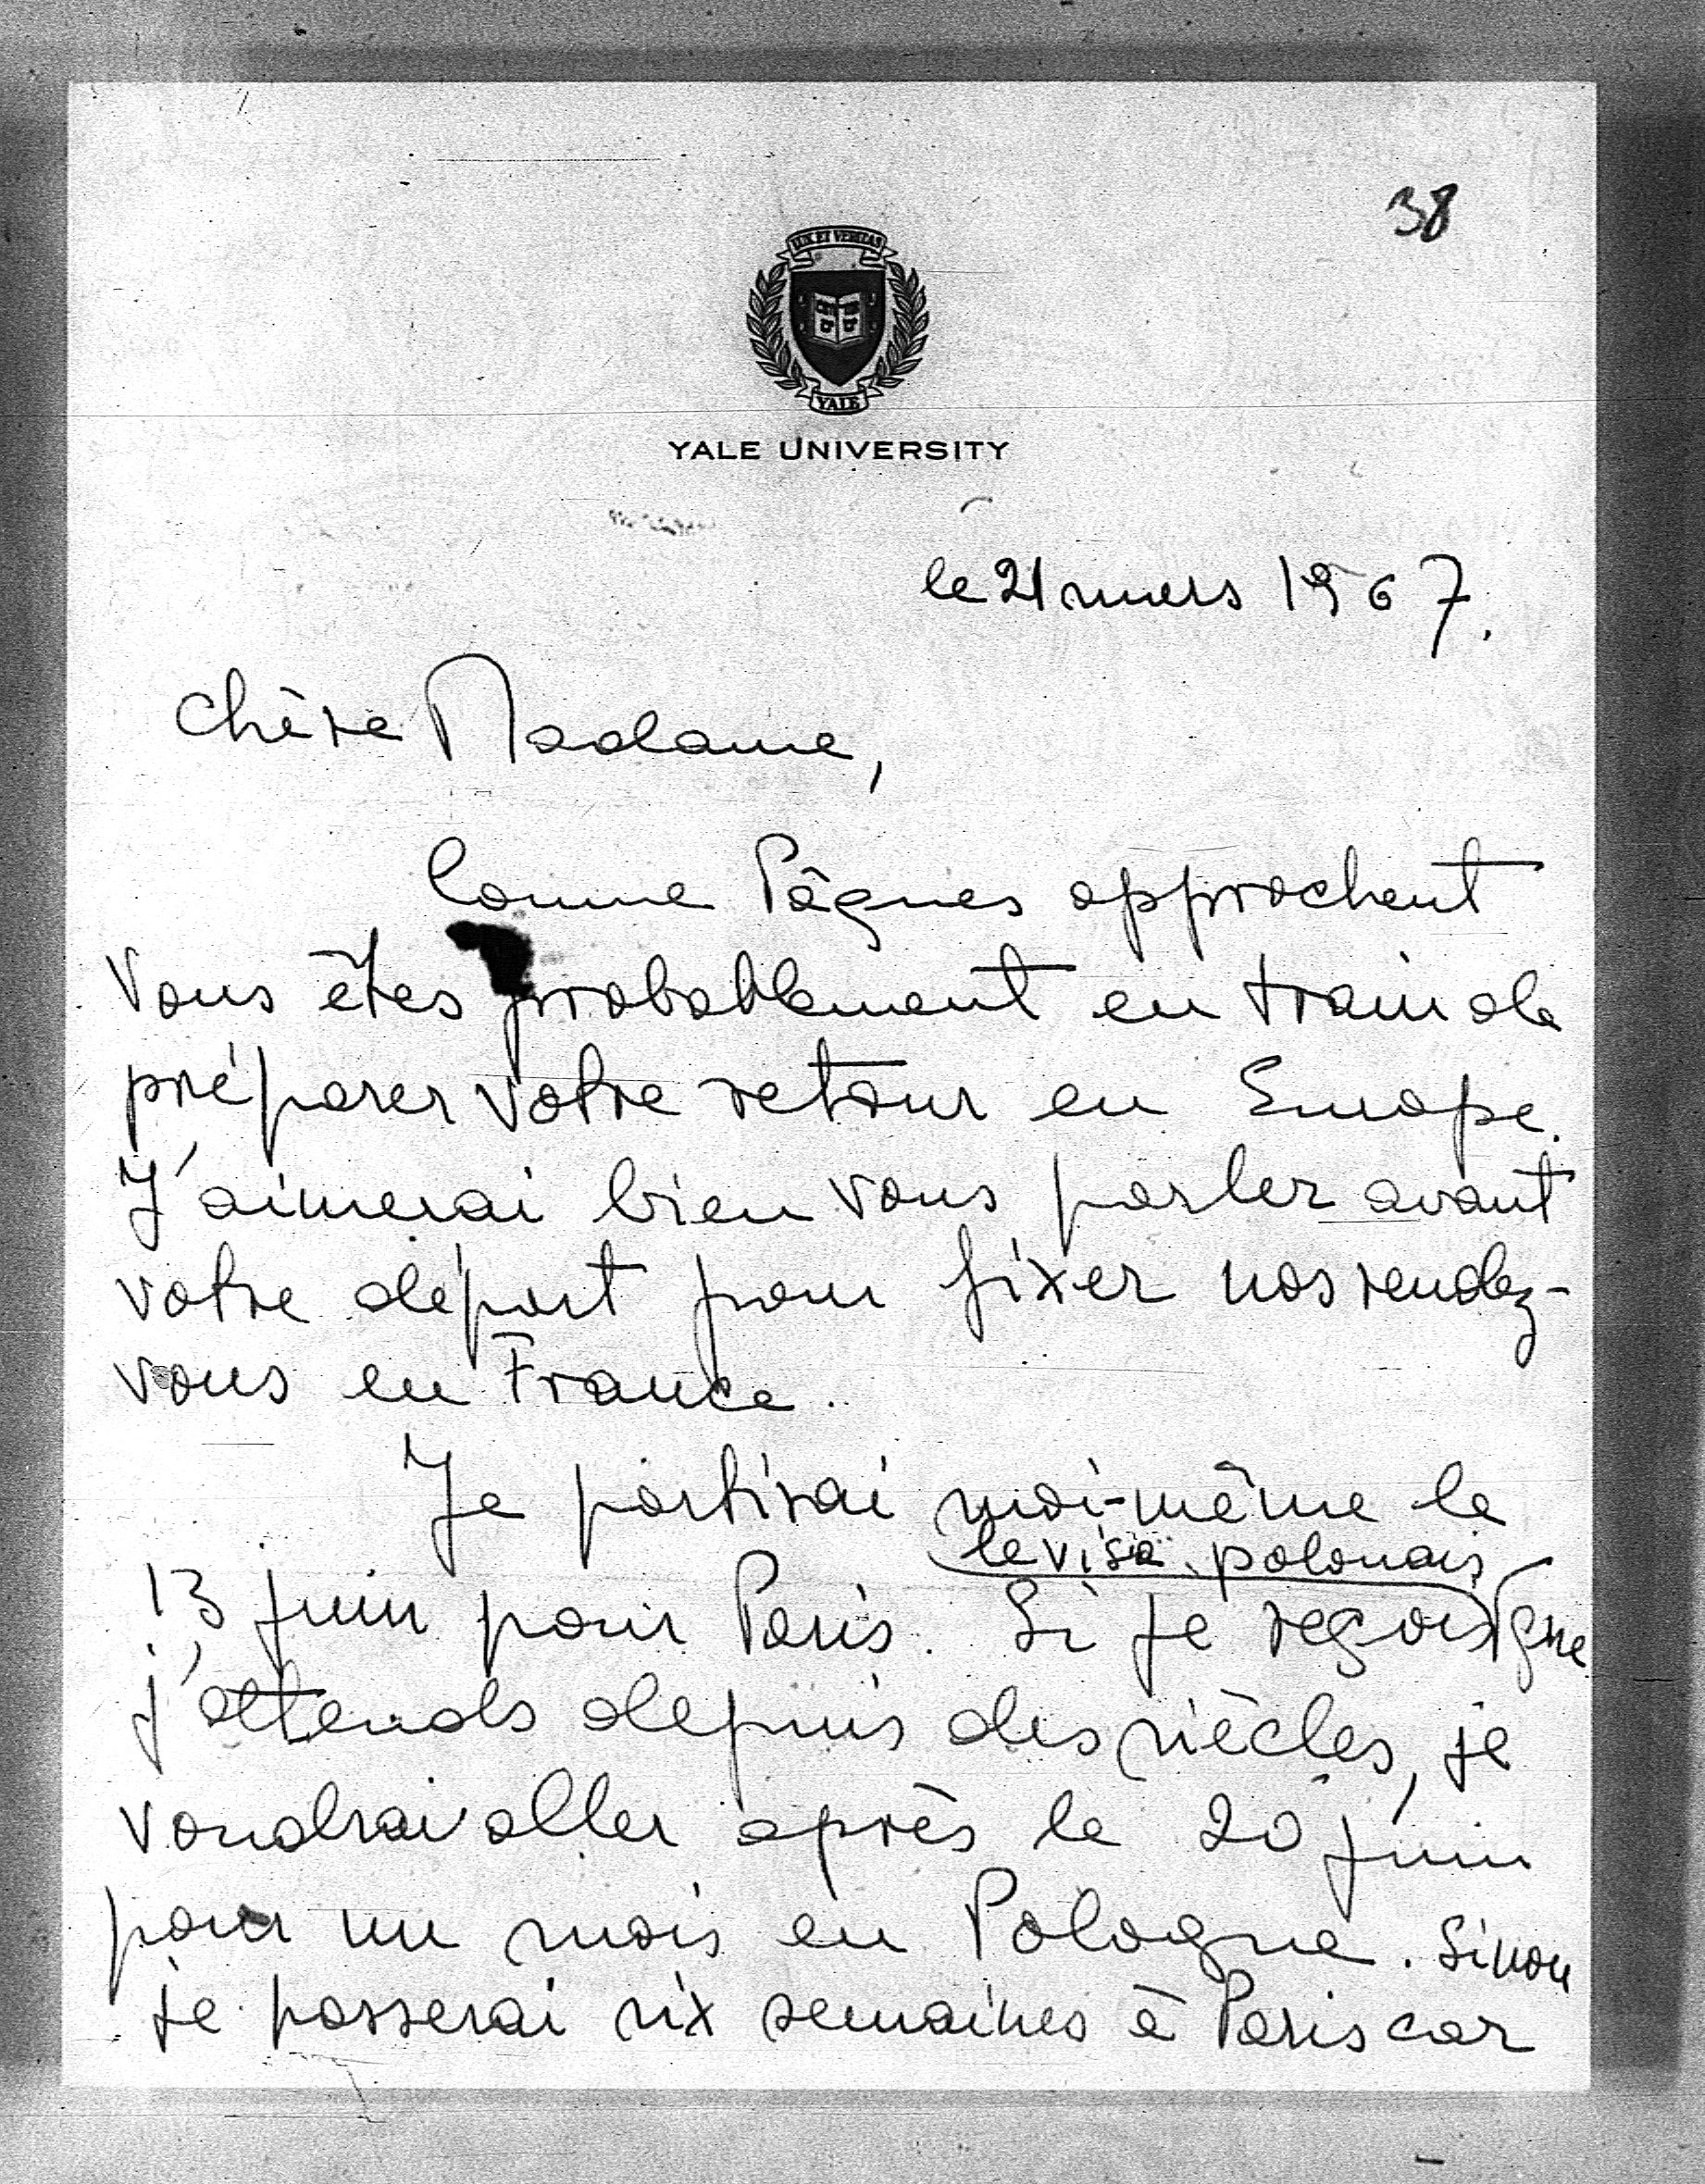 38
LUX ET VERITAS
YALE
YALE UNIVERSITY
le 21 mars 1967.
Chère Madame,
Comme Pâques approchent
vous êtes probablement en train de
préparer votre retour en Europe.
J'aimerai bien vous parler avant
votre départ pour fixer nos rendez-
vous en France.
Je partirai moi-même le
le visa polonais
13 juin pour Paris. Si je reçois que
j'attends depuis des siècles, je
voudrai aller après le 20 juin
pour un mois en Pologne. Sinon
je passerai six semaines à Paris car